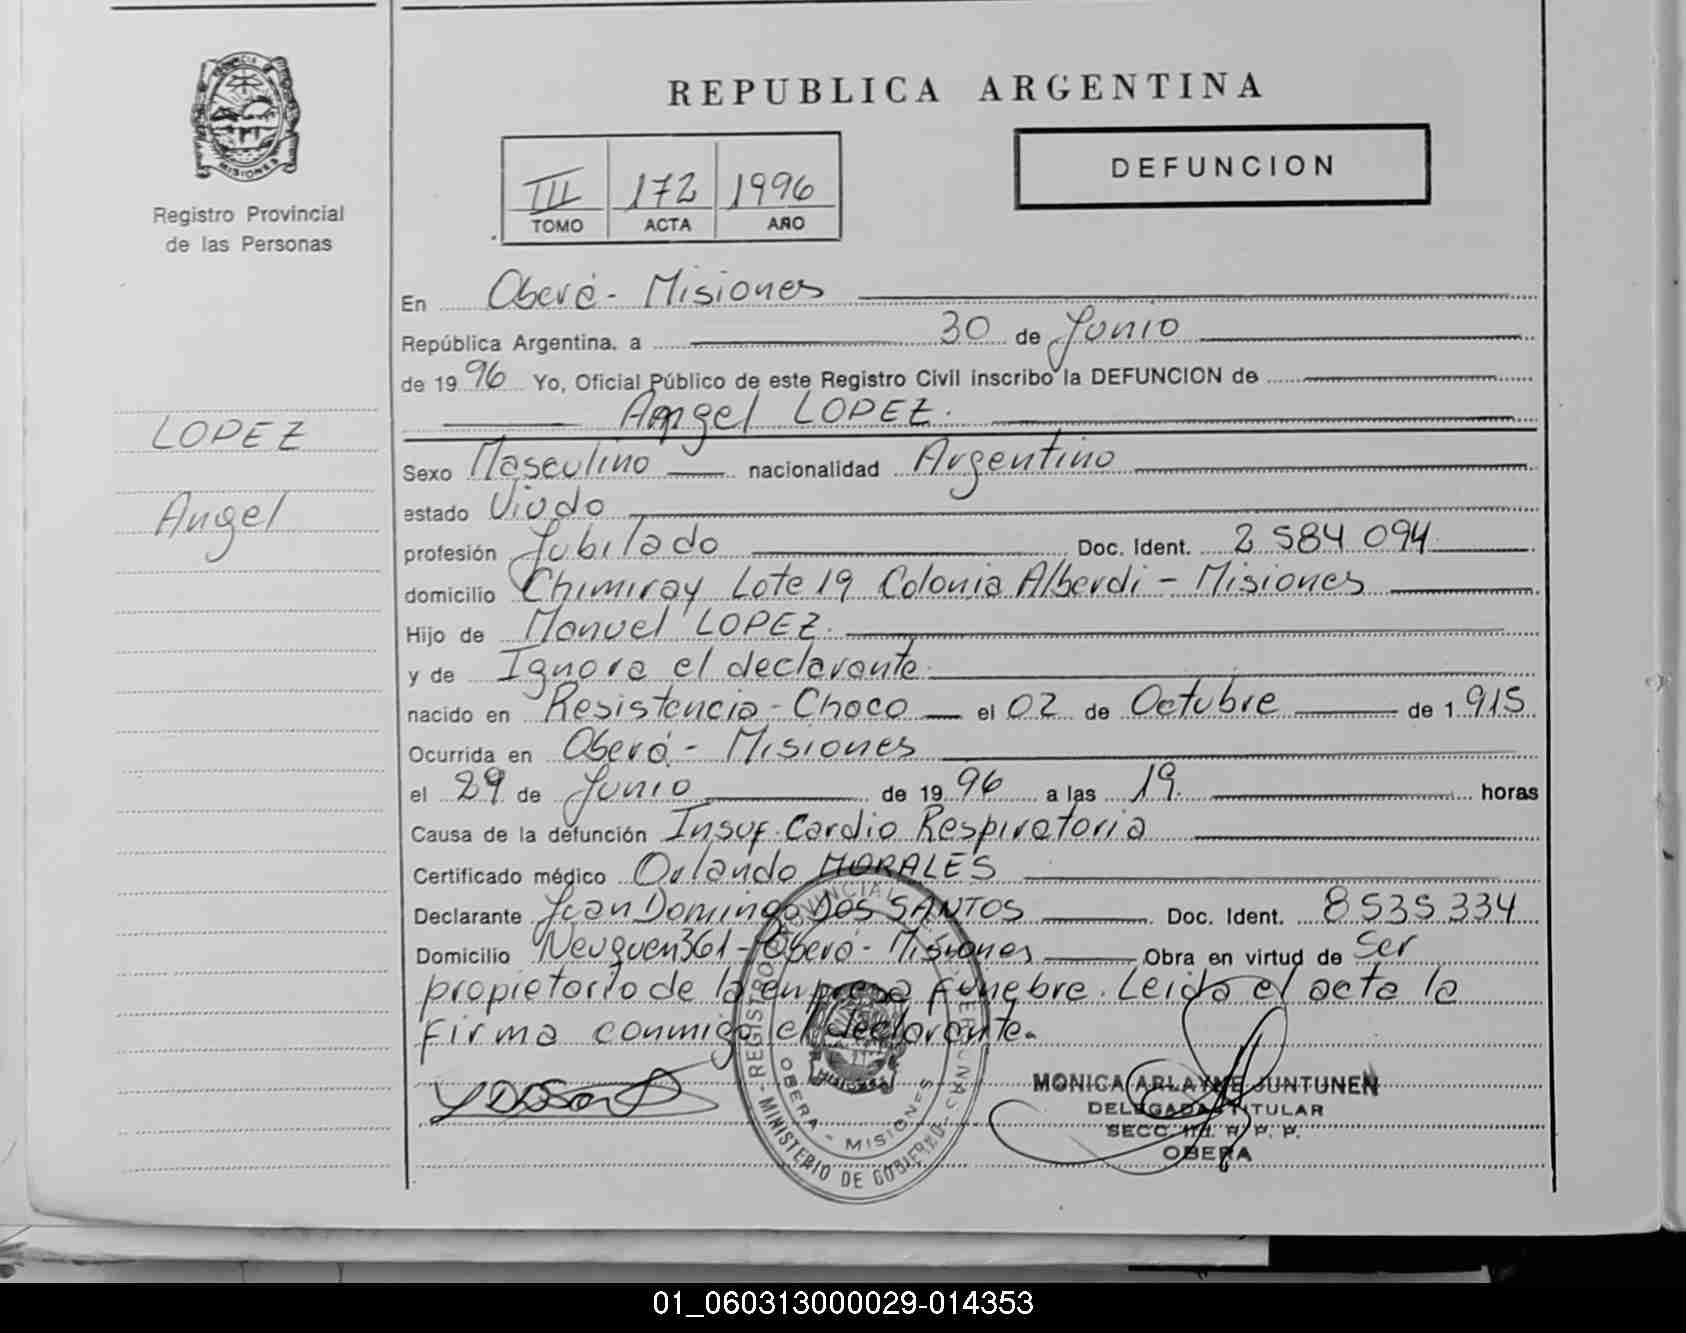 PROVINCIA DE
MISIONES
Registro Provincial
de las Personas
LOPEZ
Angel
REPUBLICA ARGENTINA
III 172 1996
TOMO ACTA AÑO
DEFUNCION
En Oberá - Misiones
República Argentina, a 30 de Junio
de 1996 Yo, Oficial Público de este Registro Civil inscribo la DEFUNCION de
Angel LOPEZ.
Sexo Masculino nacionalidad Argentino
estado Viudo
profesión Jubilado Doc. Ident. 2 584 094
domicilio Chimiray Lote 19 Colonia Alberdi - Misiones
Hijo de Manuel LOPEZ.
y de Ignora el declarante.
nacido en Resistencia - Chaco el 02 de Octubre de 1915
Ocurrida en Oberá - Misiones
el 29 de Junio de 1996 a las 19. horas
Causa de la defunción Insuf. Cardio Respiratoria
Certificado médico Orlando MORALES
Declarante Juan Domingo DOS SANTOS Doc. Ident. 8 535 334
Domicilio Neuquen 361 - Oberá - Misiones Obra en virtud de Ser
propietario de la empresa funebre. Leida el acta la
firma conmigo el declarante.
REGISTRO PROVINCIAL DE LAS PERSONAS
MINISTERIO DE GOBIERNO
OBERA - MISIONES
MISIONES
MONICA ARLAYNE JUNTUNEN
DELEGADA TITULAR
SECC. R. P. P.
OBERA
01_060313000029-014353